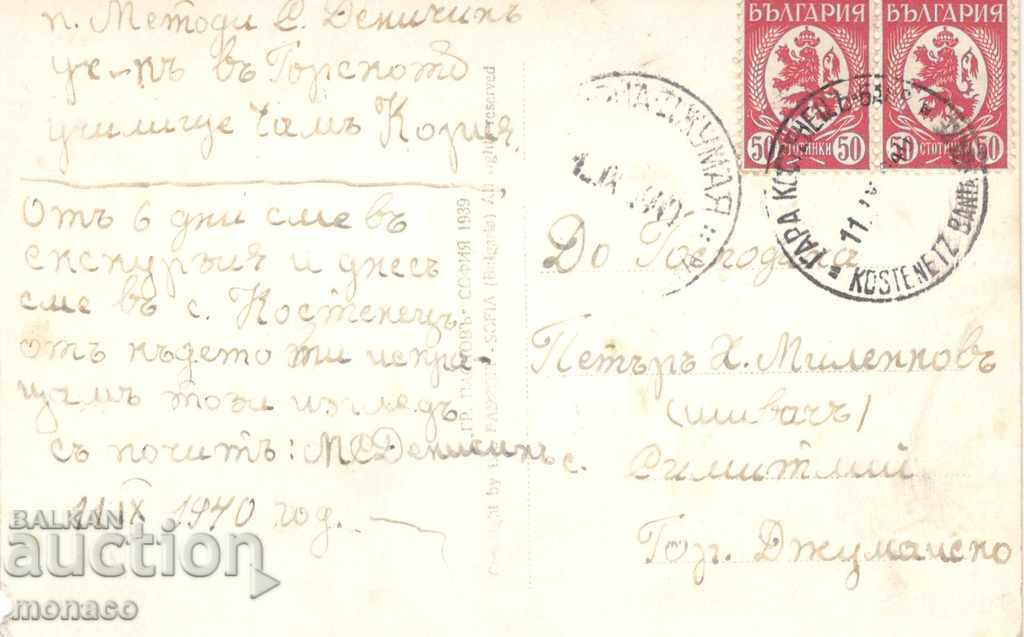 п. Методи С. Деничинъ
уч-къ въ Горското
училище Чамъ Кория
Отъ 6 дни сме въ
екскурзия и днесъ
сме въ с. Костенецъ
отъ където ти изпра-
щамъ този изгледъ
съ почитъ: МСДеничинъ
11 IX 1940 год.
ГР. ПАСКОВЪ - СОФИЯ 1939
Copyright by SOFIA (Bulgarie) All rights reserved
БЪЛГАРИЯ
50 СТОТИНКИ 50
БЪЛГАРИЯ
50 СТОТИНКИ 50
ДЖУМАЯ
ГАРА КОСТЕНЕЦЪ-БАНЯ
KOSTENETZ BANIA
11. IX
До Господина
Петъръ Х. Миленковъ
(шивачъ)
с. Симитлий
Гор. Джумайско
BALKAN
auction
monaco